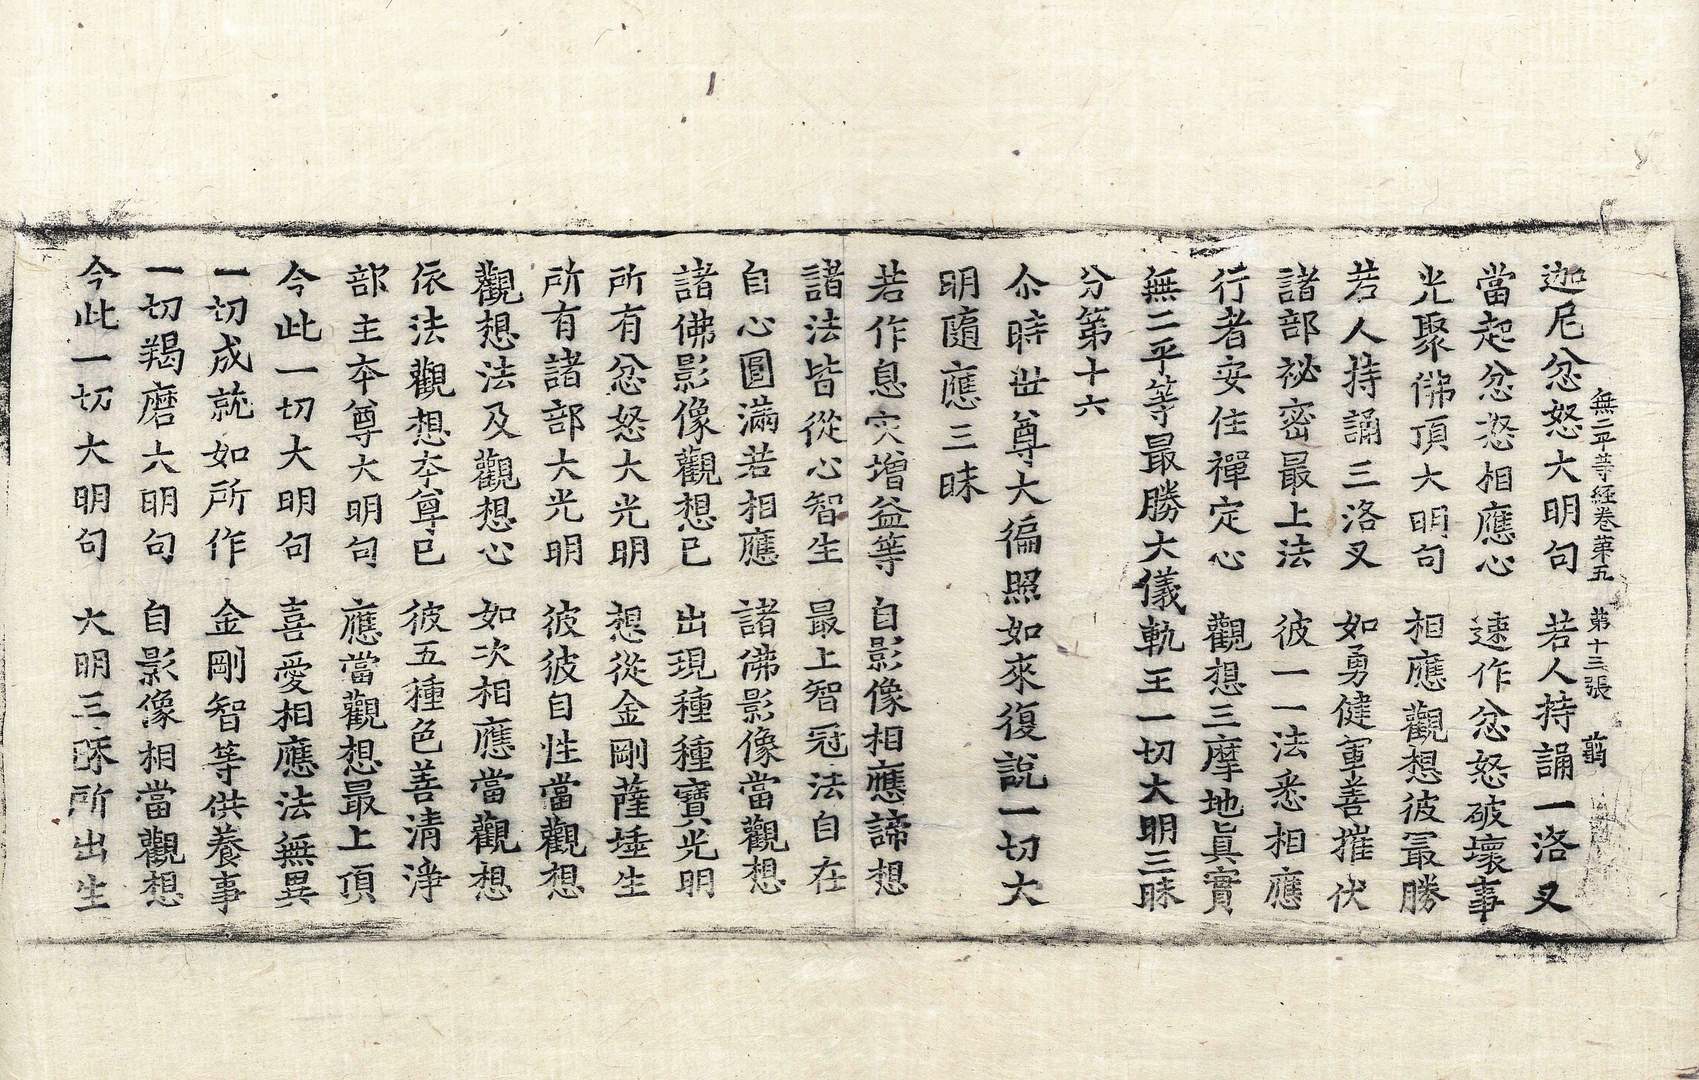 無二平等經卷第五　第十三張　翦
迦尼忿怒大明句　若人持誦一洛叉
當起忿怒相應心　速作忿怒破壞事
光聚佛頂大明句　相應觀想彼冣勝
若人持誦三洛叉　如勇健重善摧伏
諸部祕密最上法　彼一一法悉相應
行者安住禪定心　觀想三摩地眞實
無二平等最勝大儀軌王一切大明三昧
分第十六
尒時世尊大徧照如來復說一切大
明隨應三昧
若作息灾增益等　自影像相應諦想
諸法皆從心智生　最上智冠法自在
自心圓滿若相應　諸佛影像當觀想
諸佛影像觀想已　出現種種寶光明
所有忿怒大光明　想從金剛薩埵生
所有諸部大光明　彼彼自性當觀想
觀想法及觀想心　如次相應當觀想
依法觀想夲尊已　彼五種色善清淨
部主夲尊大明句　應當觀想最上頂
今此一切大明句　喜愛相應法無異
一切成就如所作　金剛智等供養事
一切羯磨大明句　自影像相當觀想
今此一切大明句　大明三昧所出生